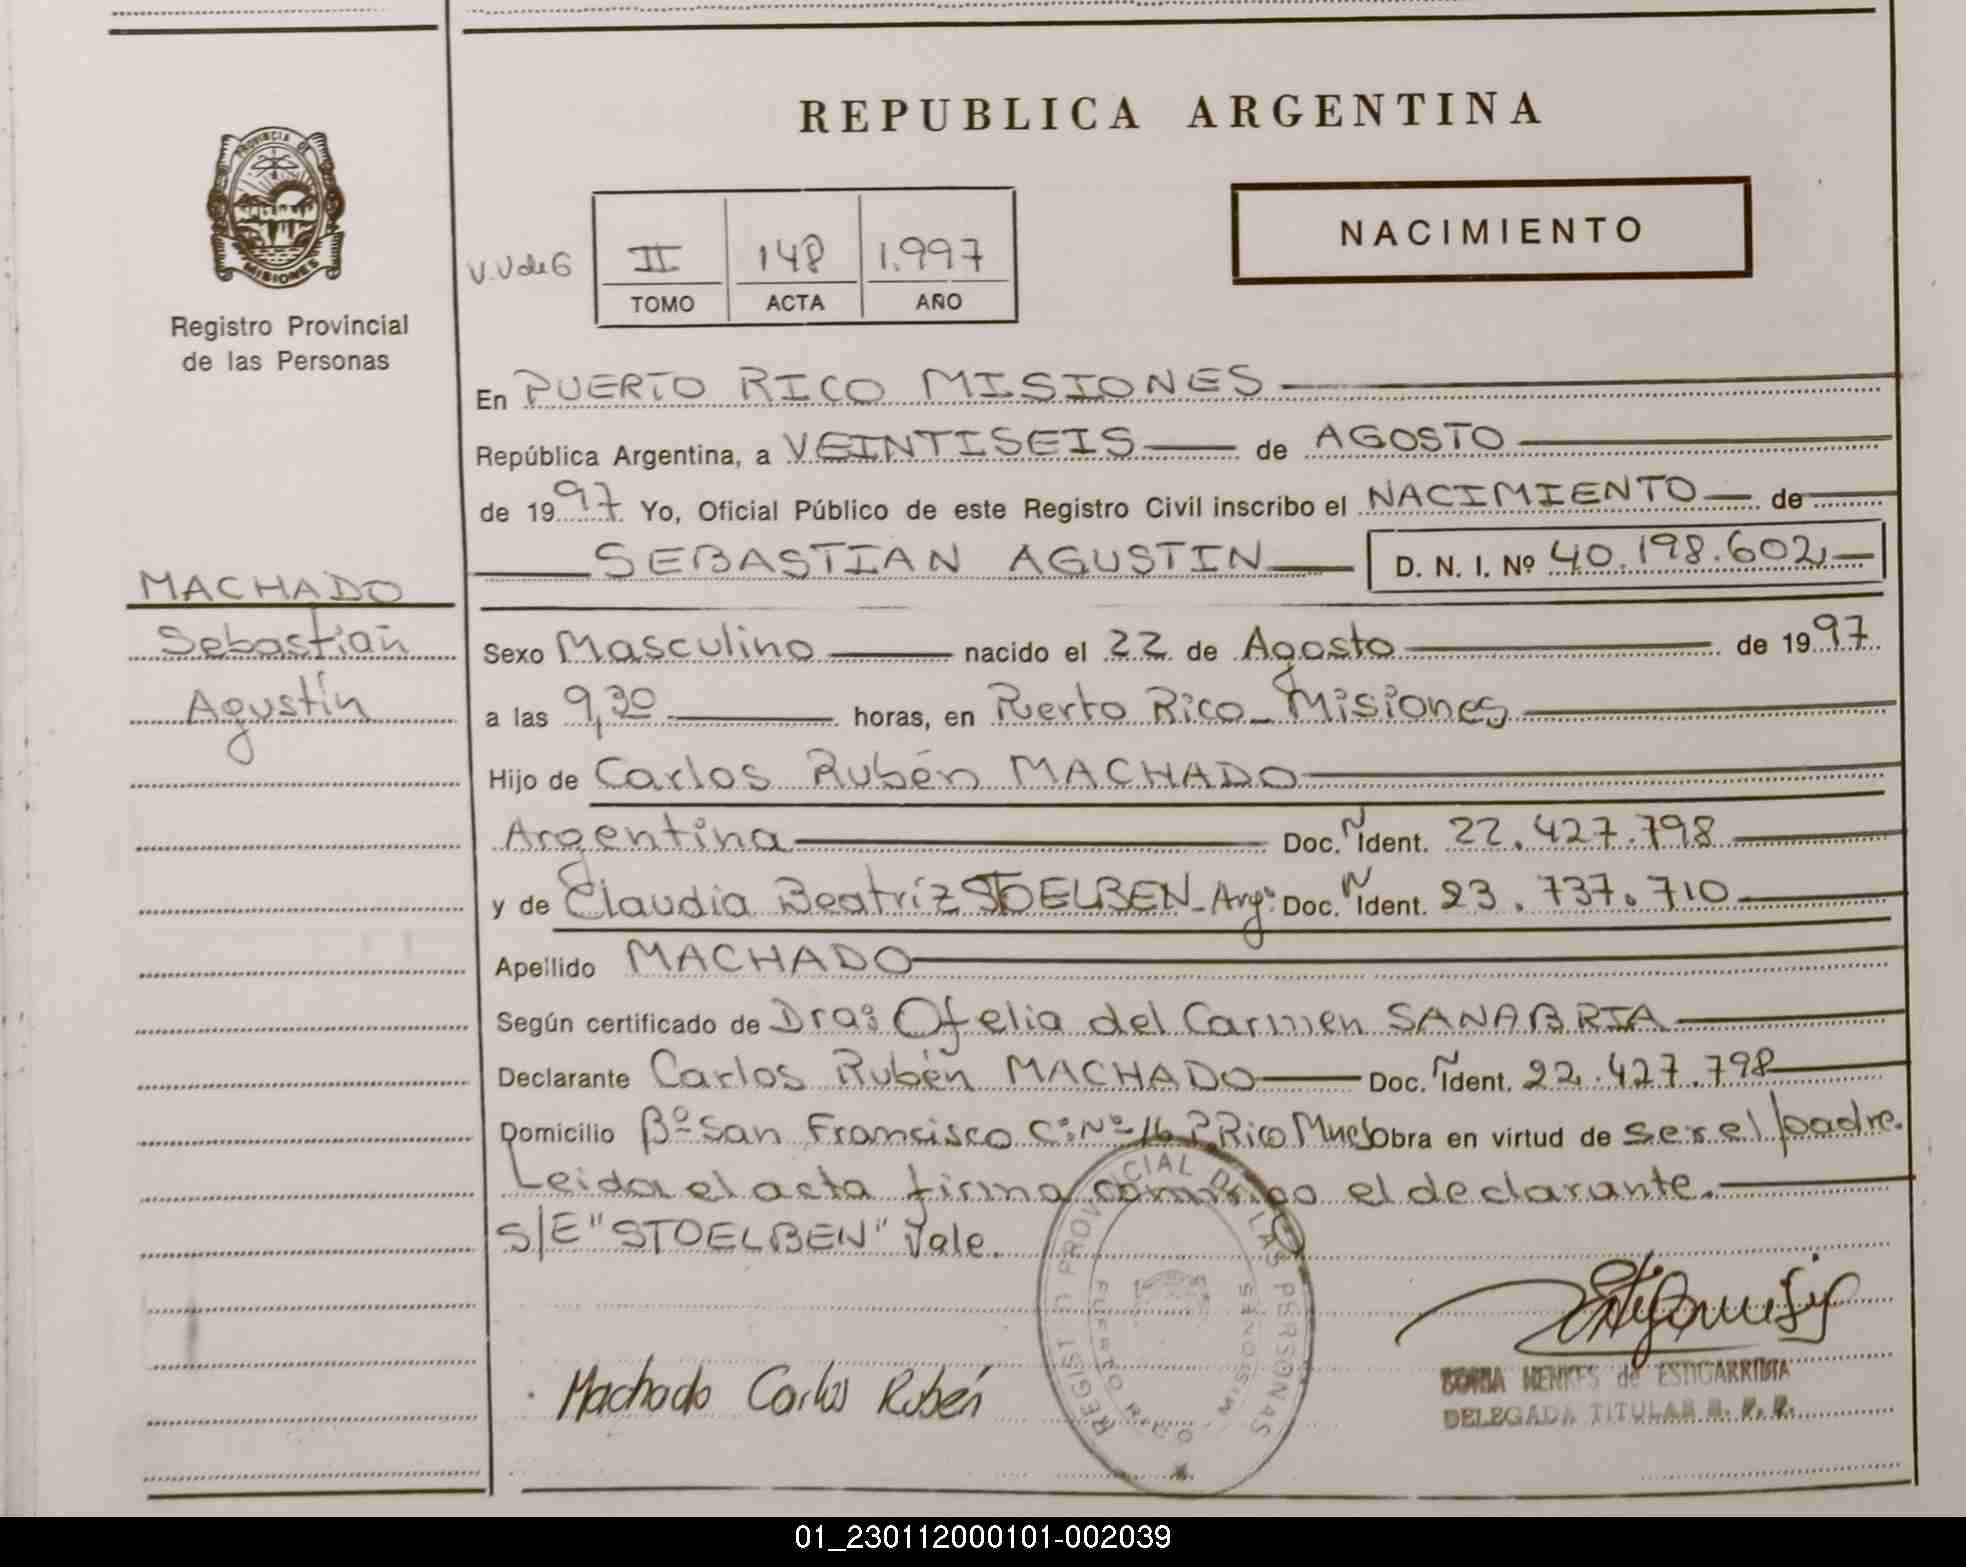 REPUBLICA ARGENTINA
PROVINCIA DE
MISIONES
Registro Provincial
de las Personas
NACIMIENTO
V.V de G
II 148 1.997
TOMO ACTA AÑO
En PUERTO RICO MISIONES
República Argentina, a VEINTISEIS de AGOSTO
de 1997 Yo, Oficial Público de este Registro Civil inscribo el NACIMIENTO de
SEBASTIAN AGUSTIN D. N. I. Nº 40.198.602
MACHADO
Sebastián
Agustín
Sexo Masculino nacido el 22 de Agosto de 1997
a las 9,30 horas, en Puerto Rico - Misiones
Hijo de Carlos Rubén MACHADO
Argentina Doc. Ñ Ident. 22.427.798
y de Claudia Beatríz STOELBEN - Arg: Doc. Ñ Ident. 23.737.710
Apellido MACHADO
Según certificado de Dra: Ofelia del Carmen SANABRIA
Declarante Carlos Rubén MACHADO Doc. Ñ Ident. 22.427.798
Domicilio Bº San Francisco Cº: Nº 16 P. Rico Mnes obra en virtud de ser el padre.
Leida el acta firma conmigo el declarante.
S/E "STOELBEN" Vale.
REGISTRO PROVINCIAL DE LAS PERSONAS
PUERTO RICO
MISIONES
Machado Carlos Rubén
HENKES de ESTIGARRIBIA
DELEGADA TITULAR R. P. P.
01_230112000101-002039